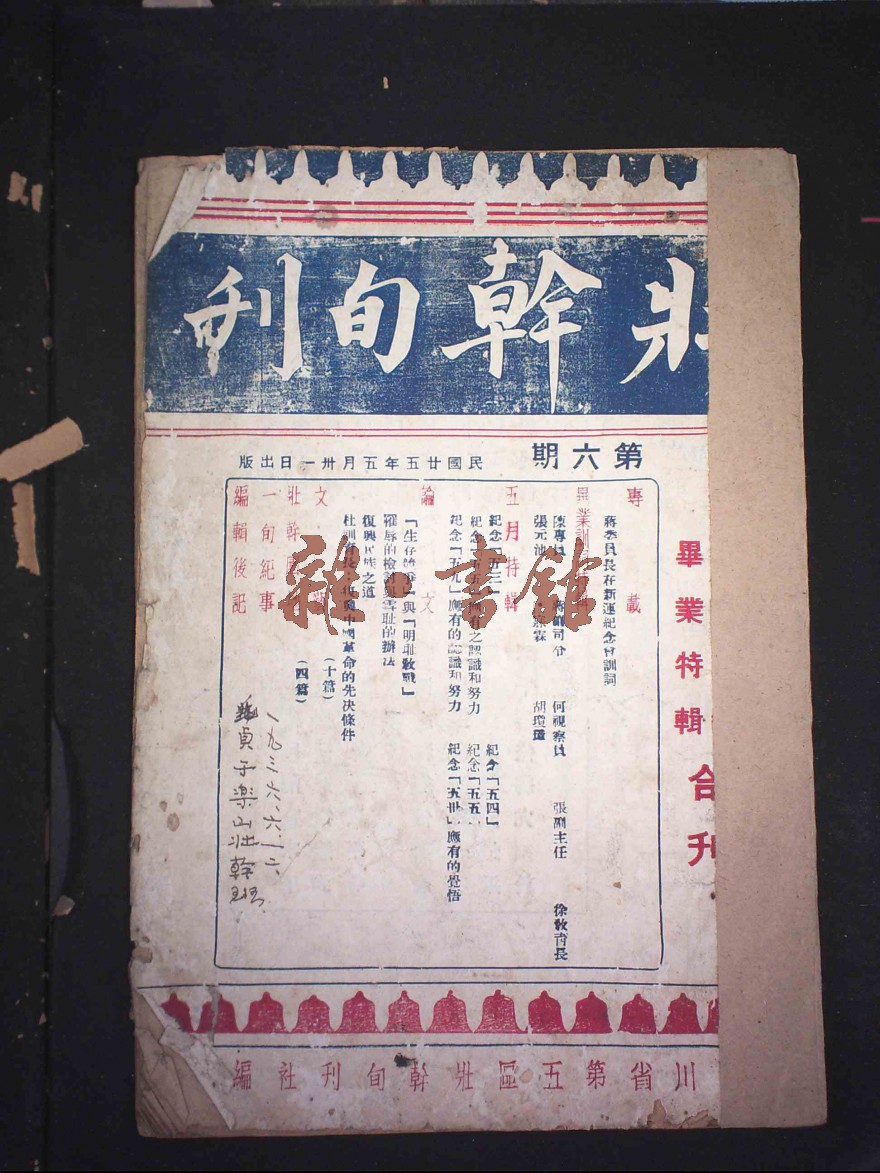 壯幹旬刊
第六期
民國廿五年五月卅一日出版
畢業特輯合刊
專載
蔣委員長在新運紀念會訓詞
畢業訓
陳專員 蔣 司令 何視察員 張副主任 徐教育長
張元池 霖 胡瓊
五月特輯
紀念「五三」 紀念「五四」
紀念 應有之認識和努力 紀念「五五」
紀念「五九」應有的認識和努力 紀念「五卅」應有的覺悟
論文
『生存 』與『明耻教戰』
羅辱的檢討與雪耻的辦法
復興民族之道
杜訓 復興中國革命的先决條件
文 (十篇)
壯幹 (四篇)
一旬紀事
編輯後記
一九三六、六、一六
貞于樂山壯幹班
川省第五區壯幹旬刊社編
雜·書館